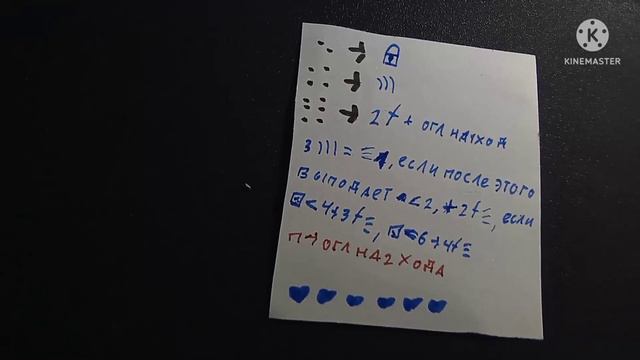 KINEMASTER
→ 🔒
→ )))
→ 2 + ОГЛ НА 1 ХОД
3 ))) = , ЕСЛИ ПОСЛЕ ЭТОГО
ВЫПОДАЕТ < 2, 2, ЕСЛИ
< 4 → 3, < 6 → 4
П → ОГЛ НА 2 ХОДА